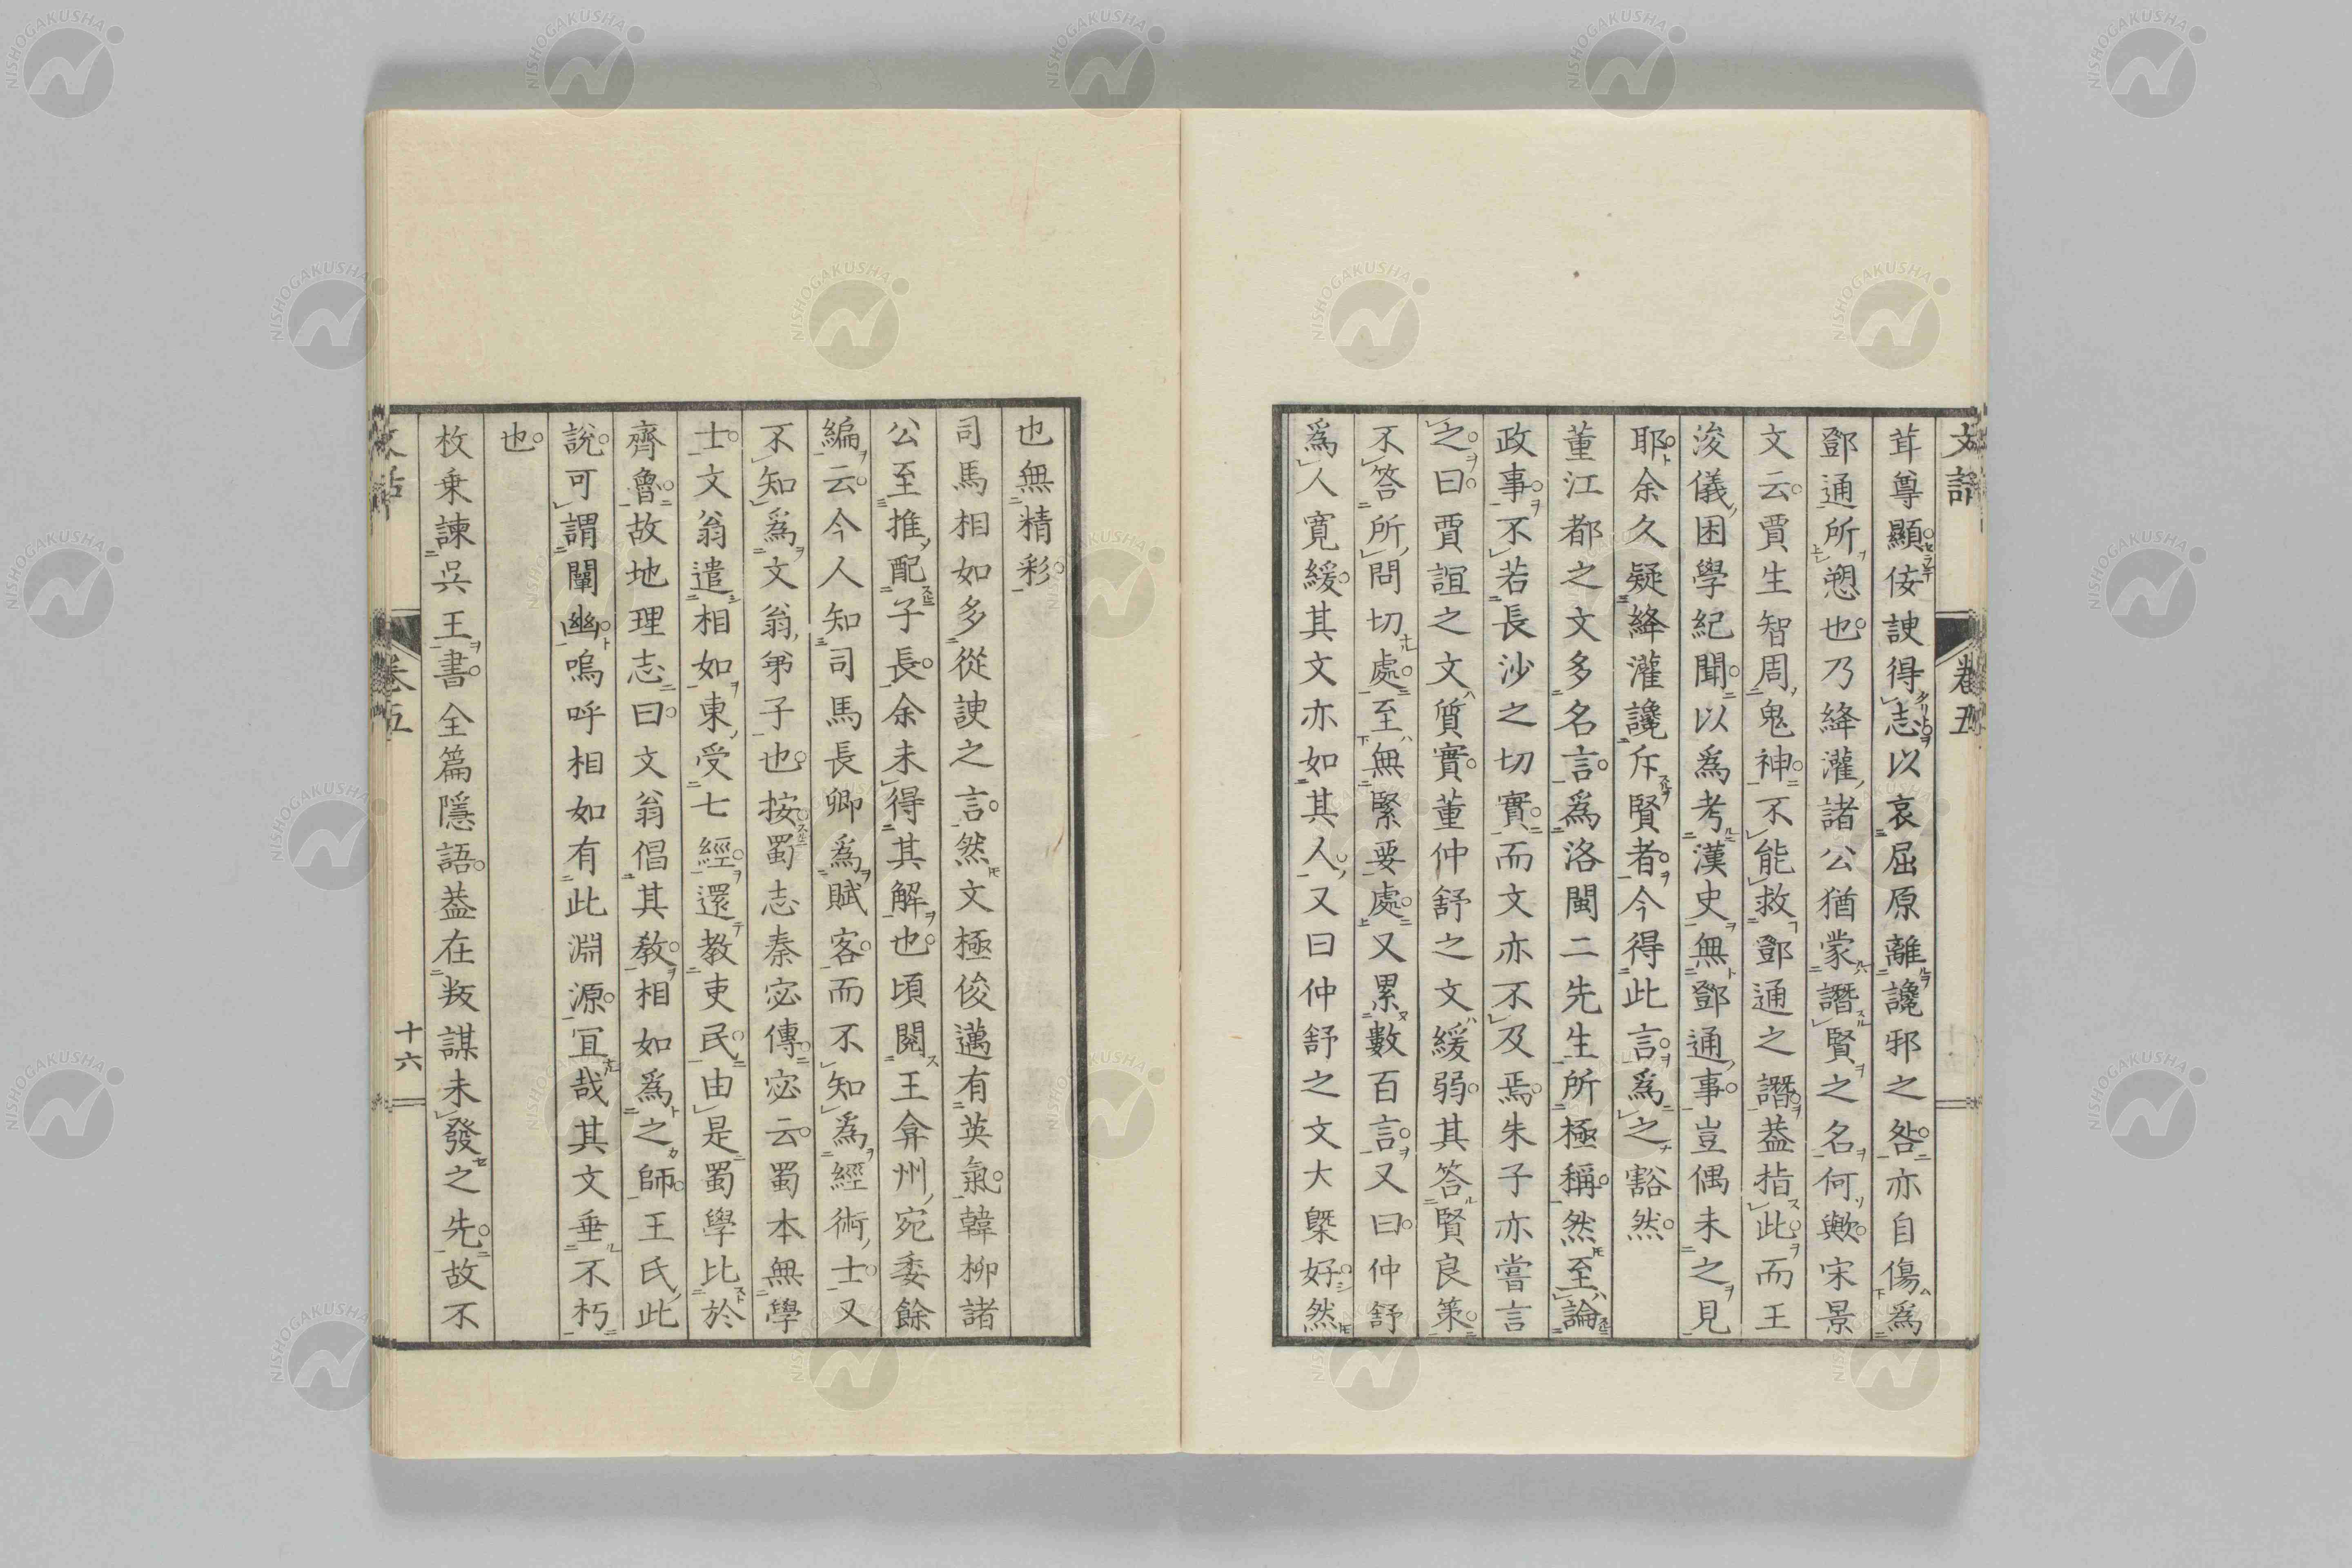 文話 卷五
茸尊顯佞諛得志以哀屈原離讒邪之咎亦自傷爲
鄧通所愬也乃絳灌諸公猶蒙譖賢之名何歟宋景
文云賈生智周鬼神不能救鄧通之譖葢指此而王
浚儀困學紀聞以爲考漢史無鄧通事豈偶未之見
耶余久疑絳灌讒斥賢者今得此言爲之豁然
董江都之文多名言爲洛閩二先生所極稱然至論
政事不若長沙之切實而文亦不及焉朱子亦嘗言
之曰賈誼之文質實董仲舒之文緩弱其答賢良策
不答所問切處至無緊要處又累數百言又曰仲舒
爲人寬緩其文亦如其人又曰仲舒之文大槩好然
也無精彩
司馬相如多從諛之言然文極俊邁有英氣韓柳諸
公至推配子長余未得其解也頃閱王弇州宛委餘
編云今人知司馬長卿爲賦客而不知爲經術士又
不知爲文翁弟子也按蜀志秦宓傳宓云蜀本無學
士文翁遣相如東受七經還教吏民由是蜀學比於
齊魯故地理志曰文翁倡其敎相如爲之師王氏此
說可謂闡幽嗚呼相如有此淵源宜哉其文垂不朽
也
枚乗諫呉王書全篇隱語葢在叛謀未發之先故不
卷五 十六
NISHOGAKUSHA